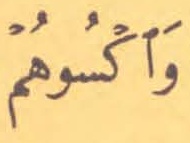 وَٱكْسُوهُمْ